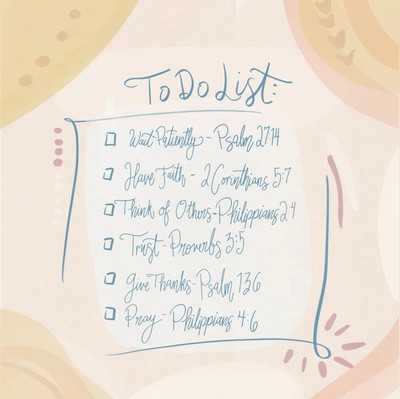 To Do List:
Wait Patiently - Psalm 27:14
Have Faith - 2 Corinthians 5:7
Think of Others - Philippians 2 4
Trust - Proverbs 3:5
Give Thanks - Psalm 136
Pray - Philippians 4:6